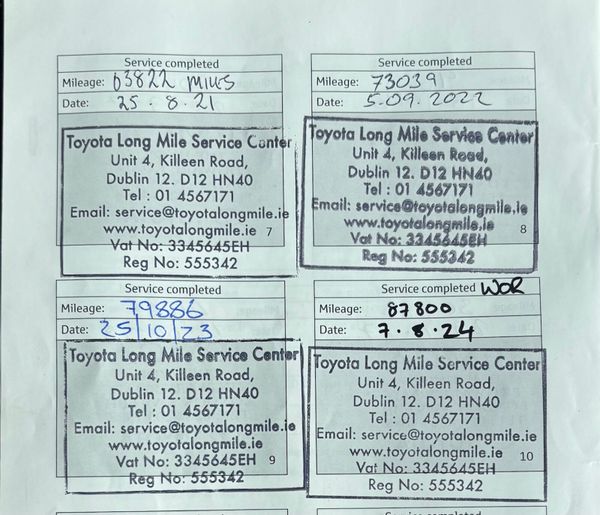 Service completed
Mileage: 63822 MILES
Date: 25.8.21
Toyota Long Mile Service Center
Unit 4, Killeen Road,
Dublin 12. D12 HN40
Tel : 01 4567171
Email: service@toyotalongmile.ie
www.toyotalongmile.ie 7
Vat No: 3345645EH
Reg No: 555342
Service completed
Mileage: 73039
Date: 5.09.2022
Toyota Long Mile Service Center
Unit 4, Killeen Road,
Dublin 12. D12 HN40
Tel : 01 4567171
Email: service@toyotalongmile.ie
www.toyotalongmile.ie 8
Vat No: 3345645EH
Reg No: 555342
Service completed
Mileage: 79886
Date: 25/10/23
Toyota Long Mile Service Center
Unit 4, Killeen Road,
Dublin 12. D12 HN40
Tel : 01 4567171
Email: service@toyotalongmile.ie
www.toyotalongmile.ie
Vat No: 3345645EH 9
Reg No: 555342
Service completed WOR
Mileage: 87800
Date: 7.8.24
Toyota Long Mile Service Center
Unit 4, Killeen Road,
Dublin 12. D12 HN40
Tel : 01 4567171
Email: service@toyotalongmile.ie
www.toyotalongmile.ie 10
Vat No: 3345645EH
Reg No: 555342